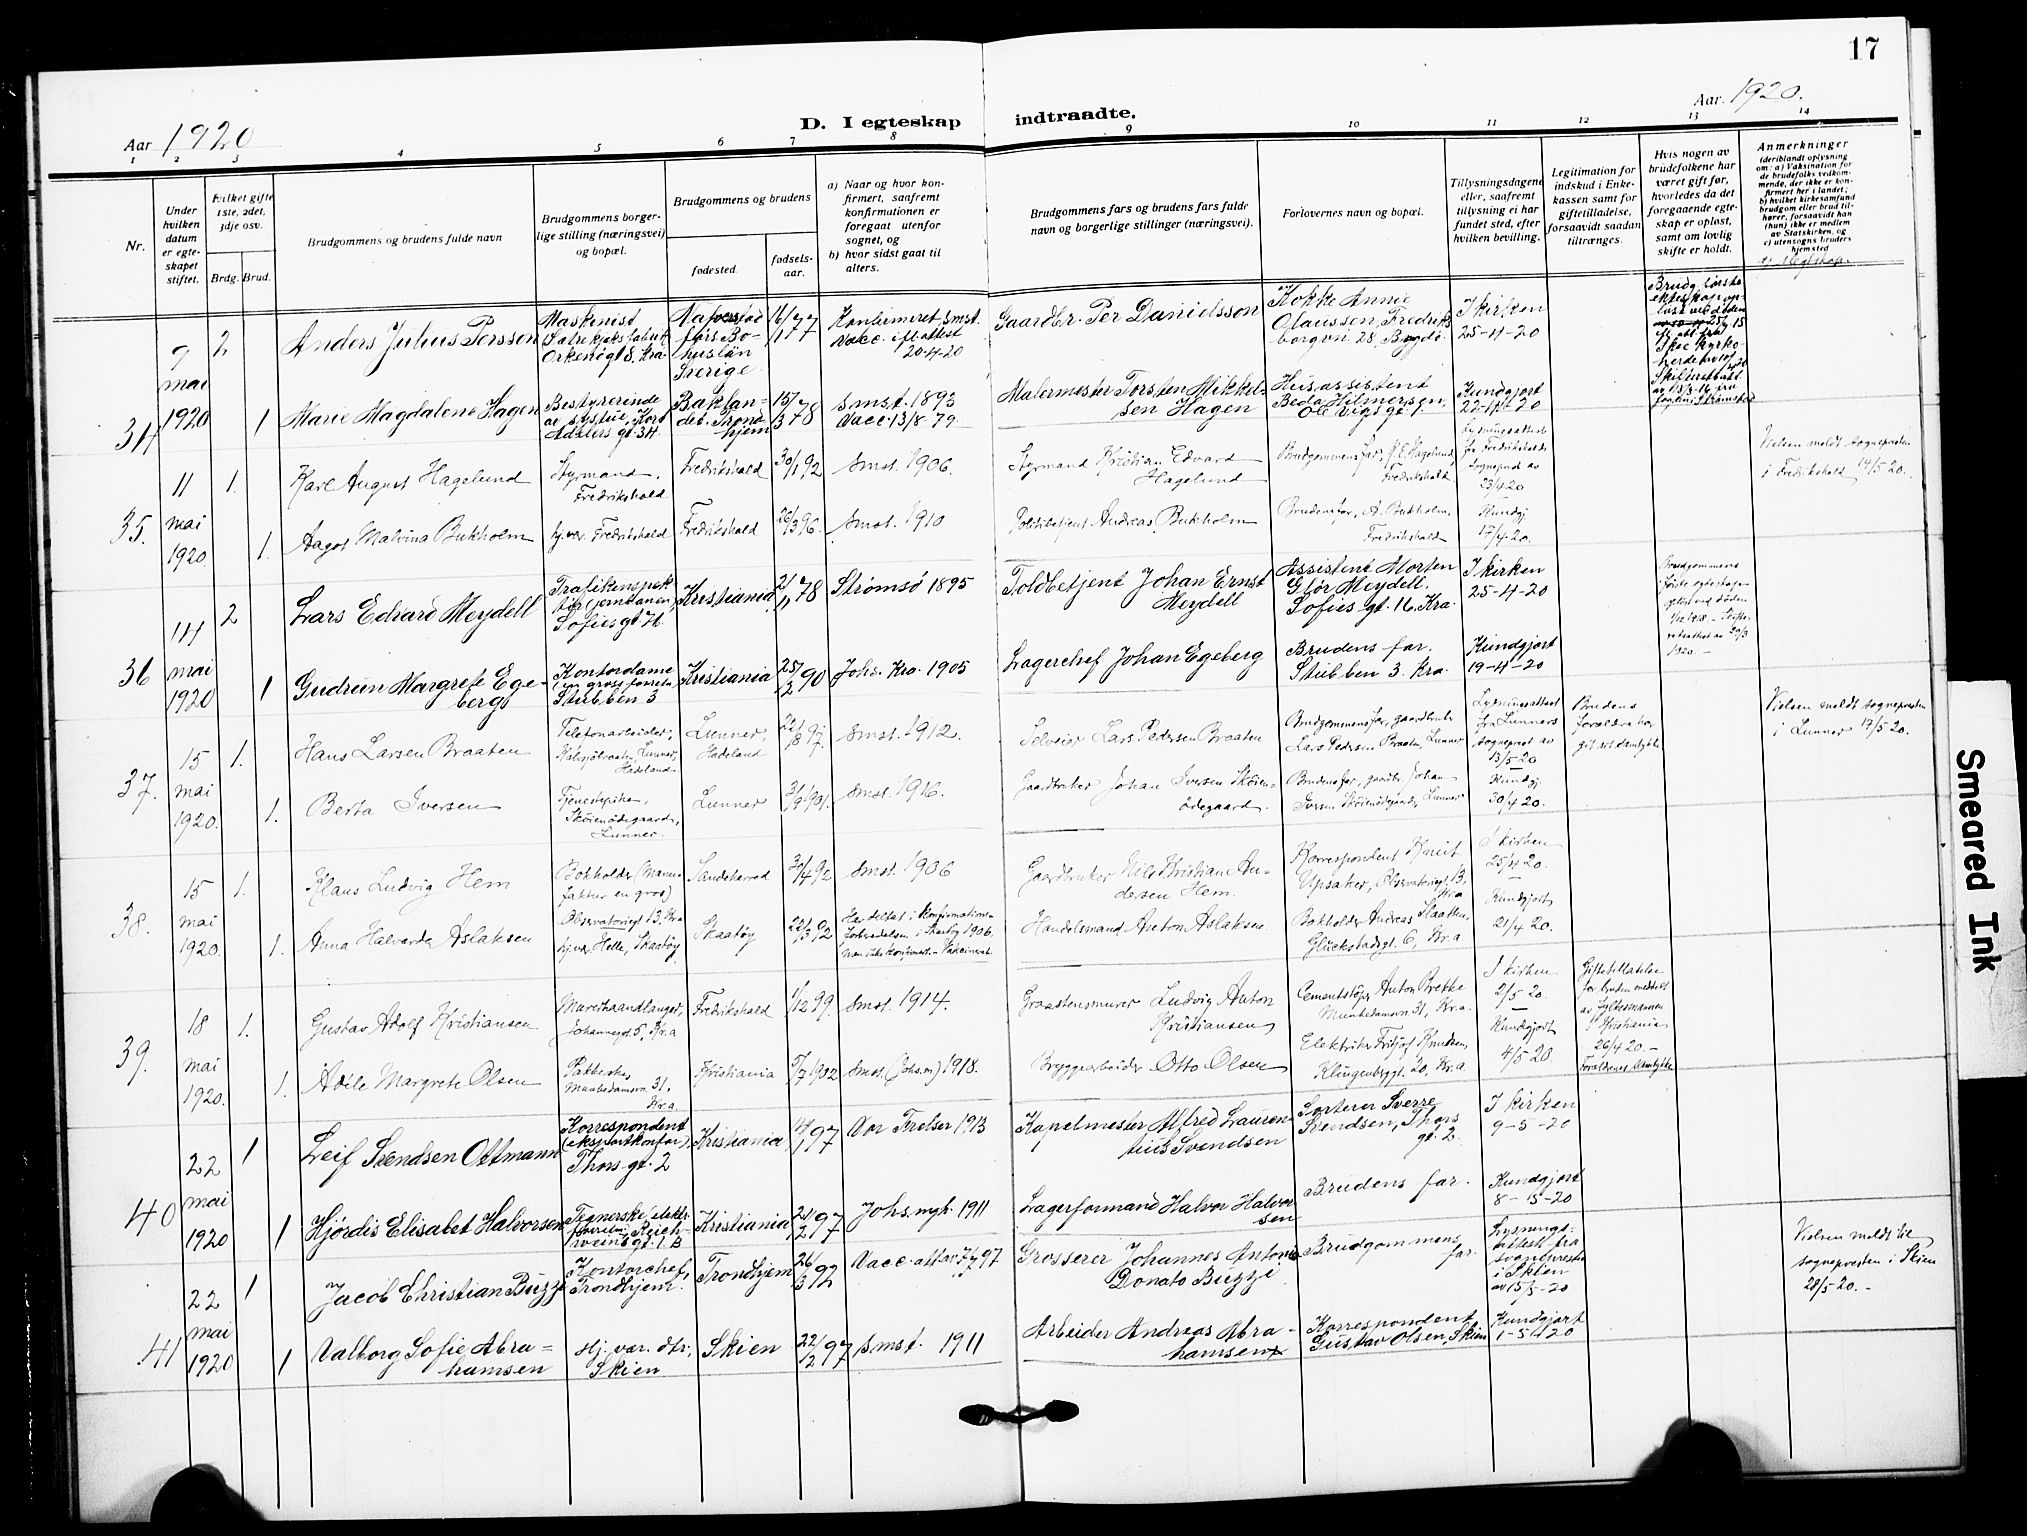 17
Aar 1920
D. I egteskap indtraadte.
Aar 1920.
1 2 3 4 5 6 7 8 9 10 11 12 13 14
Nr.
Under
hvilken
datum
er egte-
skapet
stiftet.
Hvilket gifte
1ste, 2det,
3dje osv.
Brdg. Brud.
Brudgommens og brudens fulde navn
Brudgommens borger-
lige stilling (næringsvei)
og bopæl.
Brudgommens og brudens
fødested.
fødsels-
aar.
a) Naar og hvor kon-
firmert, saafremt
konfirmationen er
foregaat utenfor
sognet, og
b) hvor sidst gaat til
alters.
Brudgommens fars og brudens fars fulde
navn og borgerlige stillinger (næringsvei).
Forlovernes navn og bopæl.
Tillysningsdagene
eller, saafremt
tillysning ei har
fundet sted, efter
hvilken bevilling.
Legitimation for
indskud i Enke-
kassen samt for
giftetilladelse,
forsaavidt saadan
tiltrænges.
Hvis nogen av
brudefolkene har
været gift før,
hvorledes da det
foregaaende egte-
skap er opløst,
samt om lovlig
skifte er holdt.
Anmerkninger
(deriblandt oplysning
om: a) Vaksination for
de brudefolks vedkom-
mende, der ikke er kon-
firmert her i landet;
b) hvilket kirkesamfund
brudgom eller brud til-
hører, forsaavidt han
(hun) ikke er medlem
av Statskirken, og
c) utensogns bruders
hjemsted
34
9
mai
1920
2
Anders Julius Persson
Maskenist
16/1 77
Konfirmeret smst.
Vacc. ifl. attest
20-4-20
Gaardbr. Per Danielsson
Kokke Annie
Olaussen, Fredriks
borgvn. 28, Bygdø.
I kirken
25-4-20
1
Marie Magdalene Hagen
Bestyrerinde
av systue, Kort
Adelers gt. 34.
Baklan-
det. Trond-
hjem
15/3 78
Smst. 1893
Vacc. 13/8-79.
Malermester Torsten Mikkel-
sen Hagen
Husassistent
Beda Hilmersen,
Ole Vigs gt 1.
Kundgjort
22-4-20
35.
11
mai
1920
1.
Karl August Hagelund
Styrmand,
Fredrikshald
Fredrikshald
30/1 92
Smst. 1906.
Styrmand Kristian Edvard
Hagelund
Brudgommens far, K. E. Hagelund,
Fredrikshald
23/4 20
Vielsen meldt sognepresten
i Fredrikshald 14/5 20.
1.
Aagot Malvina Bukholm
hj.vær. Fredrikshald
Fredrikshald
26/3 96.
Smst. 1910
Politibetjent Andreas Bukholm
Brudens far, A. Bukholm,
Fredrikshald
Kundgj.
17/4 20.
36
14
mai
1920
2
Lars Edvard Meydell
Trafikinspek-
tør (jernbanen)
Sofiesgt 76
Kristiania
2/11 78
Strømsø 1895
Toldbetjent Johan Ernst
Meydell
Assistent Morten
Glør Meydell.
Sofies gt. 16. Kra.
I kirken
25-4-20
1
Gudrun Margrete Ege-
berg
Kontordame
Stubben 3
Kristiania
25/12 90
Johs. Kra. 1905
Lagerchef Johan Egeberg
Brudens far.
Stubben 3. Kra.
Kundgjort
19-4-20
37.
15
mai
1920.
1.
Hans Larsen Braaten
Telefonarbeider,
Hadeland
Lunner,
Hadeland
22/8 97.
Smst. 1912.
Selveier Lars Pedersen Braaten
Brudgommens far, gaardbruker
Lars Pedersen Braaten, Lunner
Lysningsattest
fra Lunners
sogneprest av
13/5-20
Brudens
forældre har
git sit samtykke
Vielsen meldt sognepresten
i Lunner 17/5 20.
1.
Berta Iversen
Tjenestepike,
Skøienødegaarden,
Lunner.
Lunner
3/9 1901.
Smst. 1916.
Gaardbruker Johan Iversen Skøien-
ødegaard.
Brudens far, gaardbr. Johan
Iversen Skøienødegaard, Lunner
Kundgj.
30/4 20.
38.
15
mai
1920.
1.
Klaus Ludvig Hem
Bokholder (Manu-
faktur en gros)
Observatoriegt 13, Kr.a
Sandeherred
30/4 92
Smst. 1906
Gaardbruker Nils Kristian An-
dersen Hem.
Korrespondent Knut
Upsaker, Observatoriegt. 13,
Kr.a
I kirken
25/4 20.
1.
Anna Halvarda Aslaksen
hj.vær. Helle, Skaatøy
Skaatøy
22/3 92
Har deltat i konfirmations-
forberedelsen i Skaatøy 1906.
Men ikke konfirmert. - Vakcineret
Handelsmand Anton Aslaksen
Bokholder Andreas Slaatten,
Glückstadsgt. 6, Kr.a
Kundgjort
21/4 20.
39.
18
mai
1920.
1.
Gustav Adolf Kristiansen
Murerhaandlanger,
Johannesgt. 5, Kr.a
Fredrikshald
1/12 99.
Smst. 1914.
Graastensmurer Ludvig Anton
Kristiansen
Cementstøper Anton Brekke
Munkedamsvn 31, Kr.a.
I kirken
2/5 20.
Giftetilladelse
for bruden meddelt
av fylkesmannen
i Kristiania
26/4 20. -
Forældrenes samtykke
1.
Adele Margrete Olsen
Pakkerske,
Munkedamsvn. 31,
Kr.a.
Kristiania
5/7 1902
Smst. (Johs.m) 1918.
Bryggearbeider Otto Olsen
Elektriker Fritjof Knudsen,
Klingenberggt. 20, Kr.a.
Kundgjort
4/5 20
40
22
mai
1920
1
Leif Svendsen Ottmann
Korrespondent
(eksportkontor),
Thors gt. 2
Kristiania
14/1 97
Vor Frelser 1913
Kapelmester Alfred Lauren-
tius Svendsen
Sorterer Sverre
Svendsen, Thors
gt. 2.
I kirken
9-5-20
1
Hjørdis Elisabet Halvorsen
Kristiania
21/12 97
Johs. mgh. 1911
Lagerformand Halvor Halvor-
sen
Brudens far.
Kundgjort
8-5-20
41
22
mai
1920
1
Jacob Christian Buzzi
Kontorchef,
Trondhjem.
Trondhjem
26/3 92
Grosserer Johannes Antonio
Donato Buzzi
Brudgommens
far.
Lysnings-
attest fra
sognepresten
i Skien
av 15/5-20
Vielsen meldt til
sognepresten i Skien
28/5 20. -
1
Valborg Sofie Abra=
hamsen
Hj. vær. dtr,
Skien
Skien
22/12 97
Smst. 1911
Arbeider Andreas Abra-
hamsen
Korrespondent
Gustav Olsen, Skien
Kundgjort
1-5-20
Smeared Ink